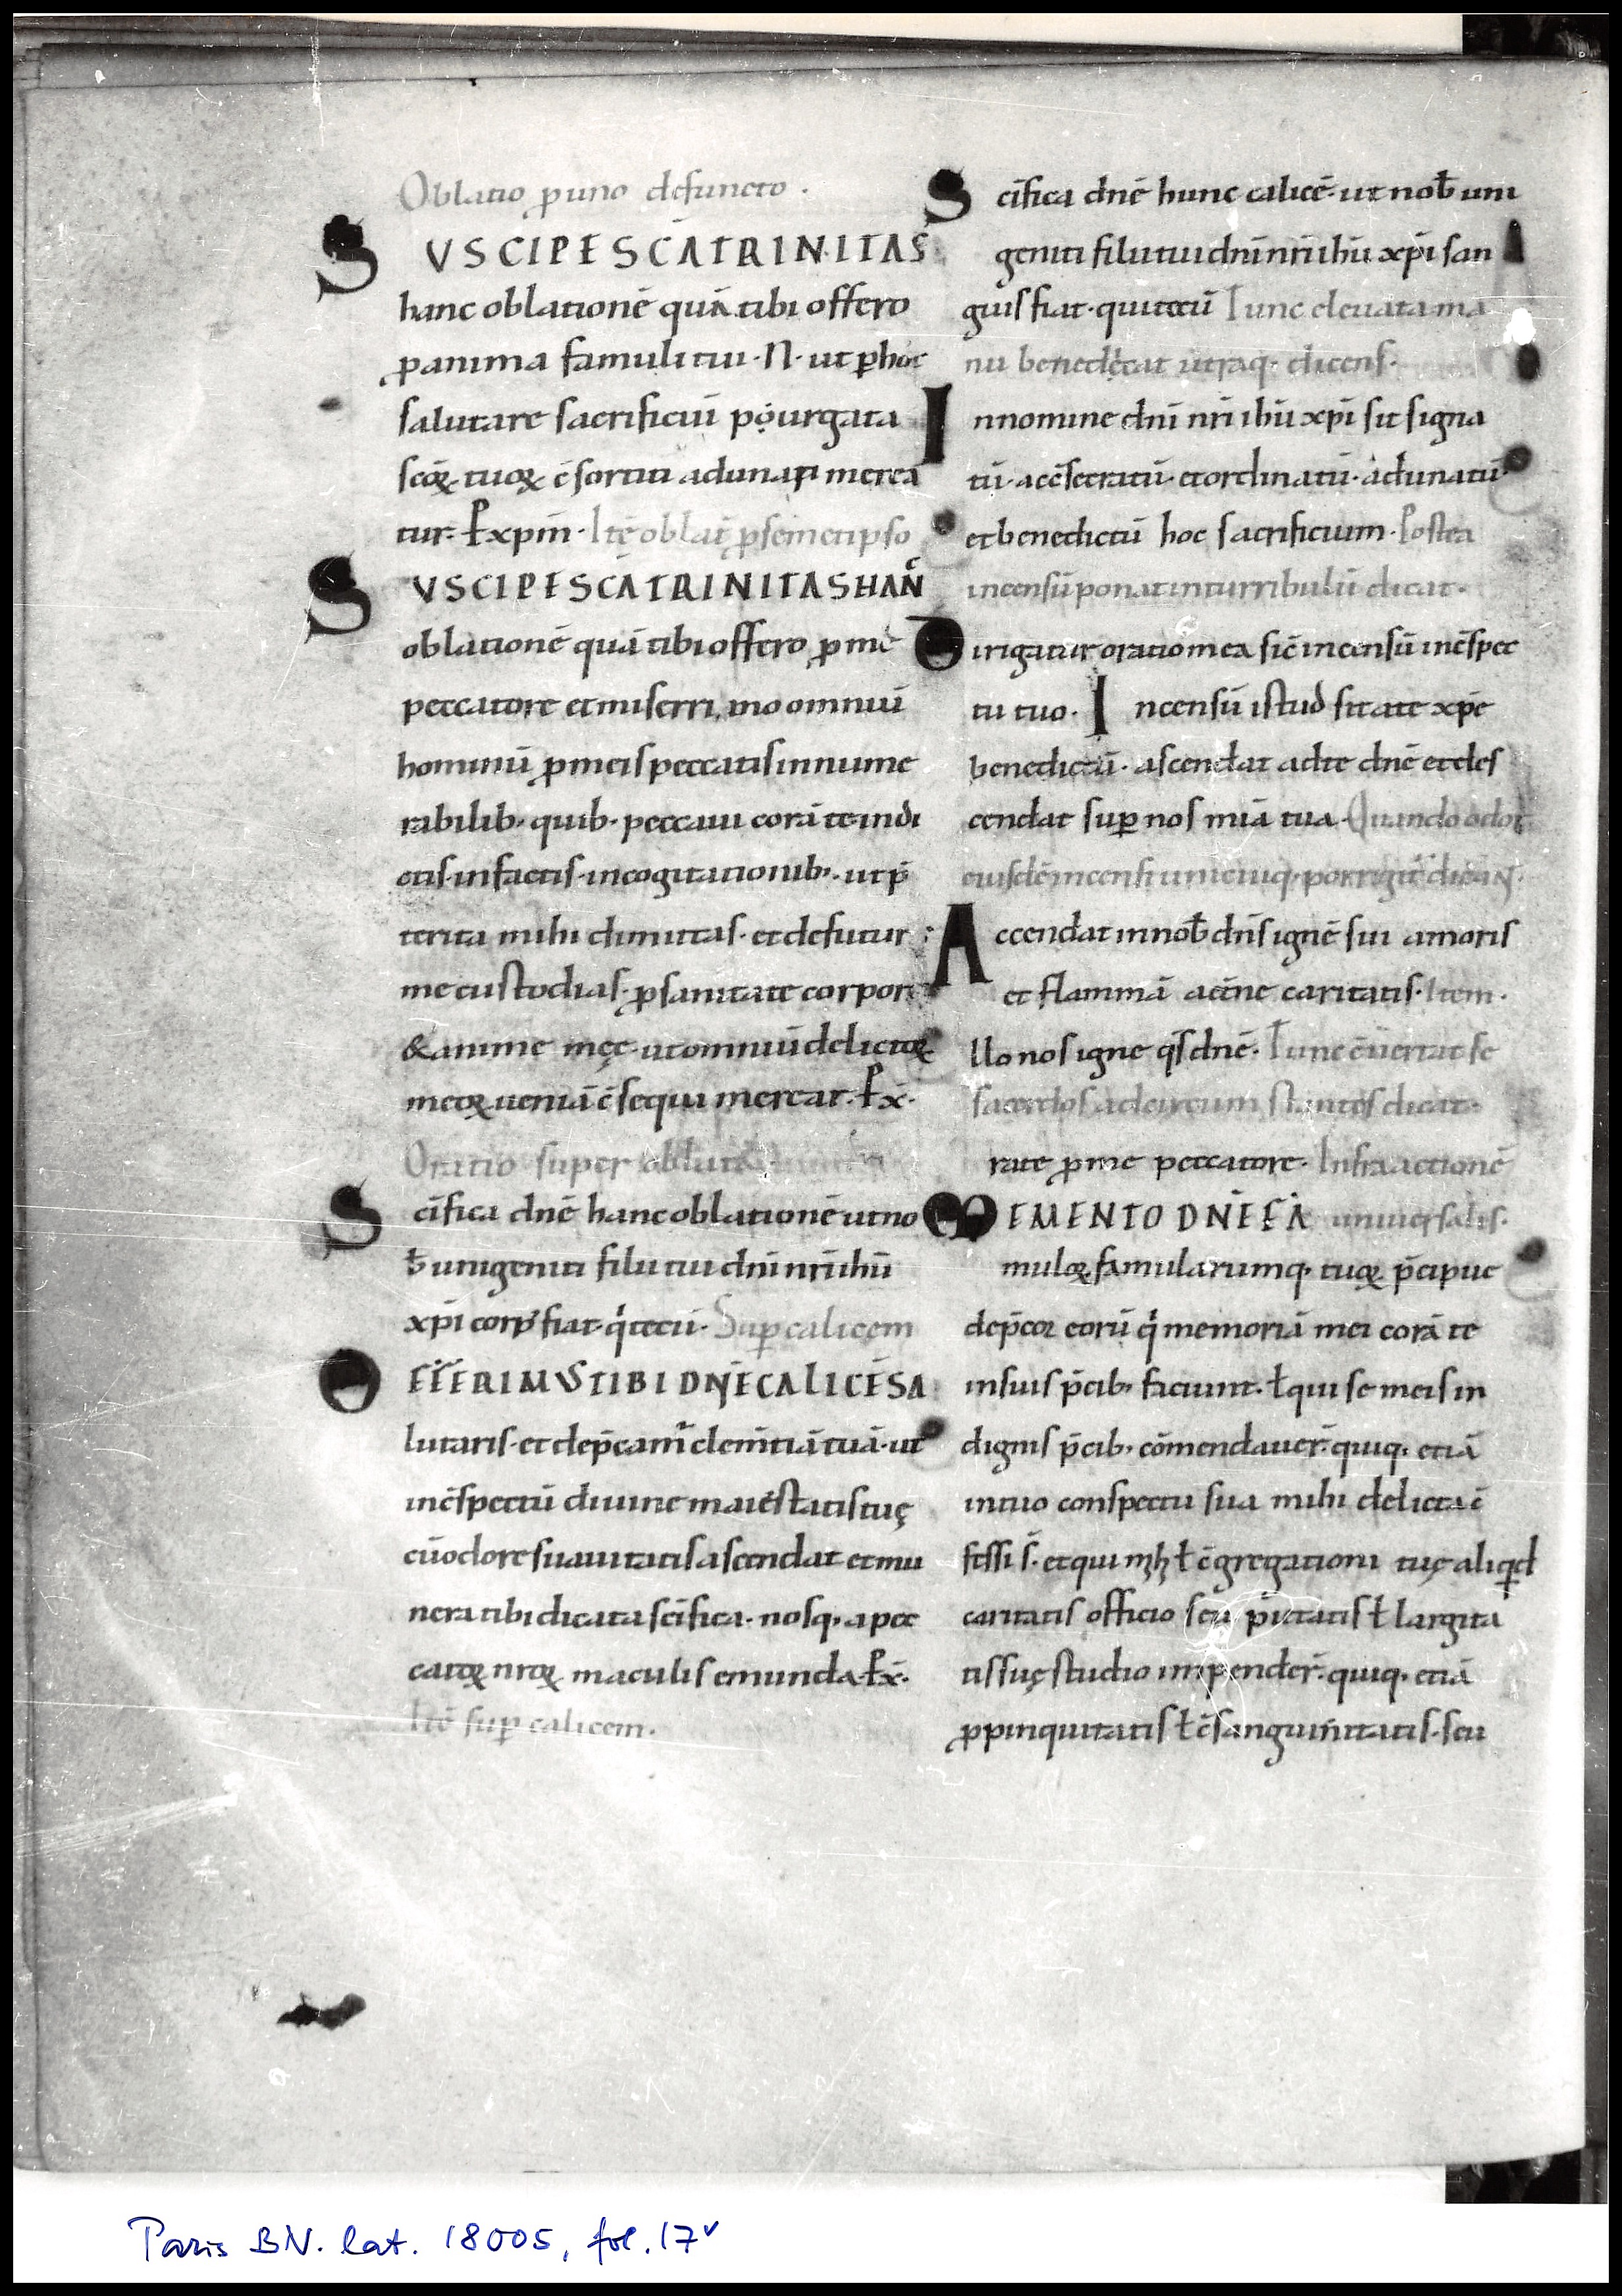 Oblatio ꝓ uno defuncto .
SVSCIPE SCĀ TRINITAS
hanc oblationē quā tibi offero
ꝓ anima famuli tui · N · ut ꝑ hoc
salutare sacrificiū purgata
scōꝝ tuoꝝ c̄sortiū adunari merea
tur · P xpm̄ · Itē oblat̄ ꝓ semetipso
SVSCIPE SCĀ TRINITAS HANC
oblationē quā tibi offero ꝓ me
peccatore et miserrimo omniū
hominū ꝓ meis peccatis innume
rabilib; quib; peccaui corā te in di
ctis · in factis · in cogitationib; · ut p̄
terita mihi dimittas · et de futur
me custodias · ꝓ sanitate corpor
& anime meę · ut omniū delictoꝝ
meoꝝ ueniā c̄sequi merear · P x̄ ·
Oratio super oblata
Scīfica dnē hanc oblationē ut no
ƀ unigeniti filii tui dnī nrī ihū
xpī corp' fiat · qi tecū · Sup calicem
OFFERIMVS TIBI DNĒ CALICĒ SA
lutaris · et dep̄cam̄ clem̄tiā tuā · ut
in c̄spectū diuine maiestatis tuę
cū odore suauitatis ascendat et mu
nera tibi dicata scīfica · nosq; a pec
catoꝝ nr̄oꝝ maculis emunda · P x̄ ·
Itē sup calicem ·
Scīfica dnē hunc calicē · ut noƀ uni
geniti filii tui dnī nrī ihū xpī san
guis fiat · qui tecū Tunc eleuata ma
nu benedicat utraq; dicens ·
In nomine dnī nrī ihū xpī sit signa
tū · ac c̄secratū · et ordinatū · adunatū
et benedictū hoc sacrificium · Postea
incensū ponat in turribulū dicat ·
Dirigatur oratio mea sic̄ incensū in c̄spec
tu tuo · Incensū istud sit a te xpē
benedictū · ascendat ad te dnē et des
cendat sup nos miā tua · Quando odor
eiusdē incensi unicuiq; porrigit̄ dicat̄ ·
Accendat in noƀ dns̄ ignē sui amoris
et flammā aet̄ne caritatis · Item ·
Illo nos igne qs̄ dnē · Tunc c̄uertat se
sacerdos ad circum stantes dicat ·
rate ꝓ me peccatore · Infra actionē
MEMENTO DNĒ FA uniuersalis ·
muloꝝ famularumq; tuoꝝ p̄cipue
dep̄cor eorū qi memoriā mei corā te
in suis p̄cib; faciunt · ł qui se meis in
dignis p̄cib; cōmendauer̄ · quiq; etiā
in tuo conspectu sua mihi delicta c̄
fessi s̄ · et qui mihi ł c̄gregationi tuę aliqd
caritatis officio seu pietatis ł largita
tis suę studio impender̄ · quiq; etiā
ꝓpinquitatis ł c̄sanguinitatis · seu
Paris BN. lat. 18005, fol. 17v